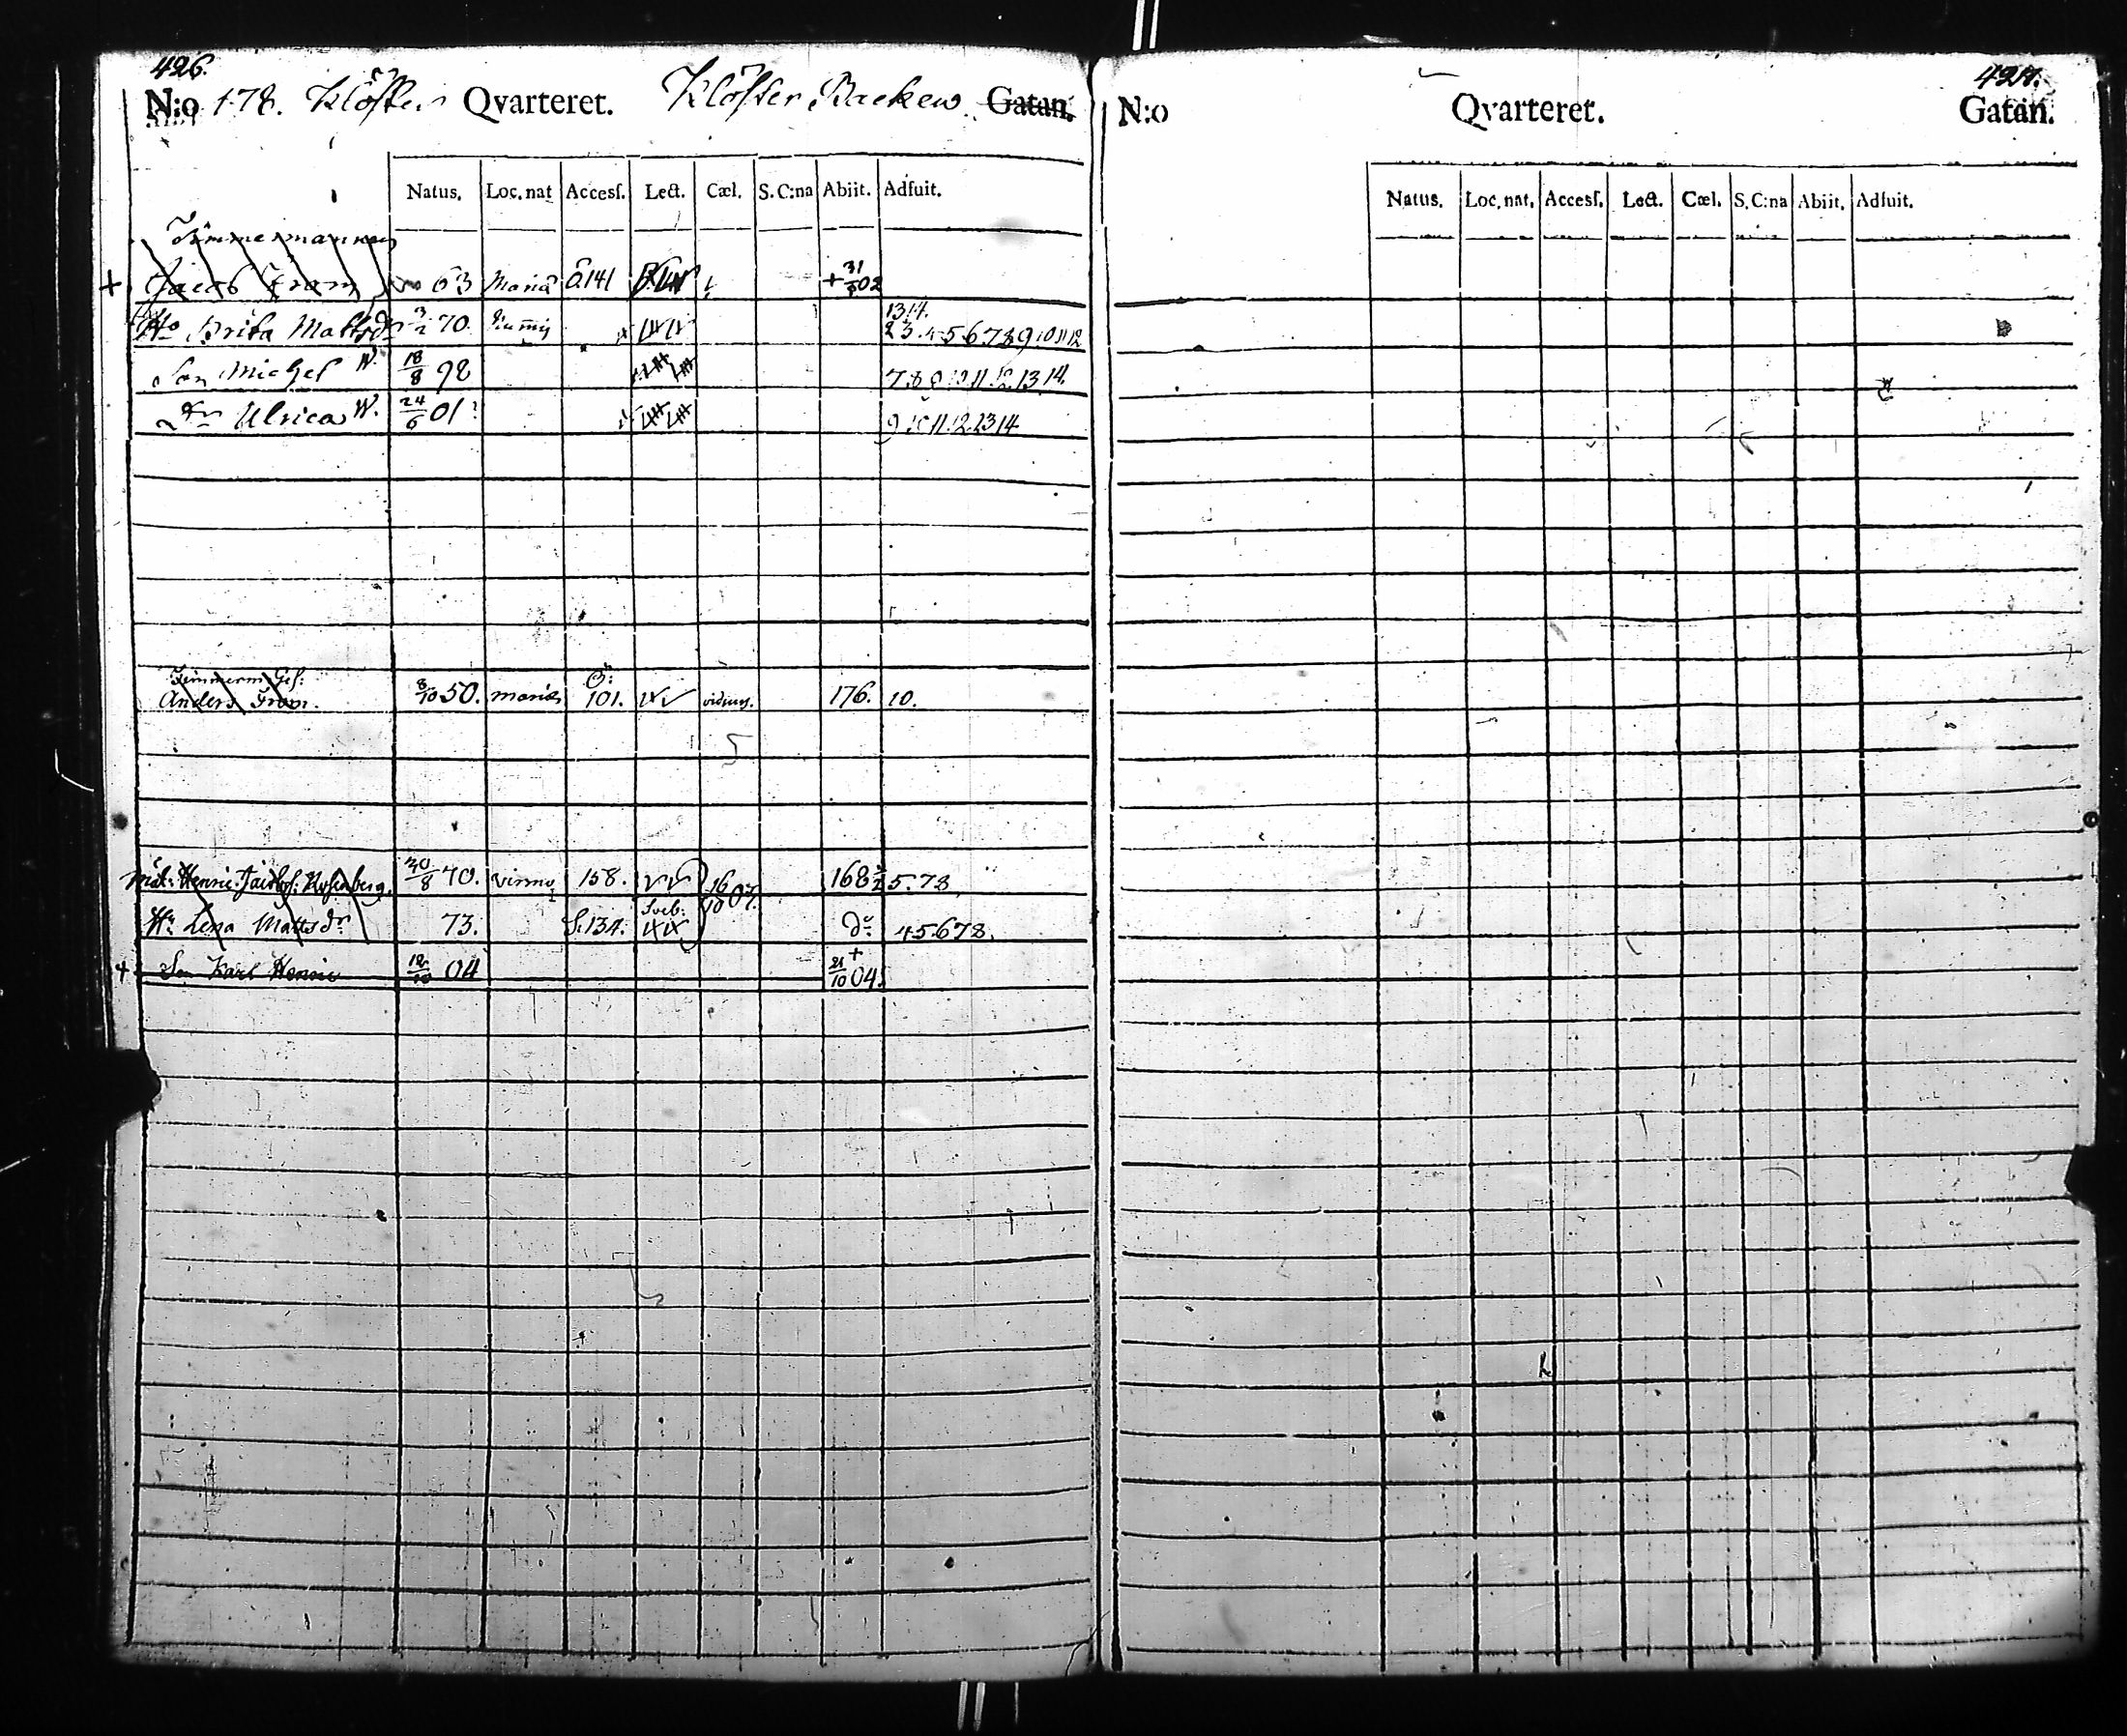 426.
N:o 178. Klöster Qvarteret. Klöster Backen Gatan.
Natus. Loc. nat Accesſ. Lect. Cæl. S.C:na Abiit. Adfuit.
Timmermannen
+ Jacob Fram 63 Mariæ Ö.141 + 31 02
1314.
Ho Brita Mattsdr 70 2 3. 4 5 6. 7 8 9 10 11 12
Son Michel W. 18/8 98 7. 8 9 10 11. 12. 13 14.
Dr Ulrica W. 24/6 01 9 10 11. 12. 13 14
Timmerm Ges: Ö:
Anders Fram. 8/10 50. Mariæ 101. 176. 10.
Henric Jacobs: Rosenberg 20/8 70. Virmo 158. 16/10 07. 168 5. 78
Hu Lena Mattsdr 73. S.134. Sveb: do 4 5. 6 7 8.
+ Son Karl Henric 04 + 21/10 04.
427.
N:o Qvarteret. Gatan.
Natus. Loc. nat. Accesſ. Lect. Cæl. S.C:na Abiit. Adfuit.